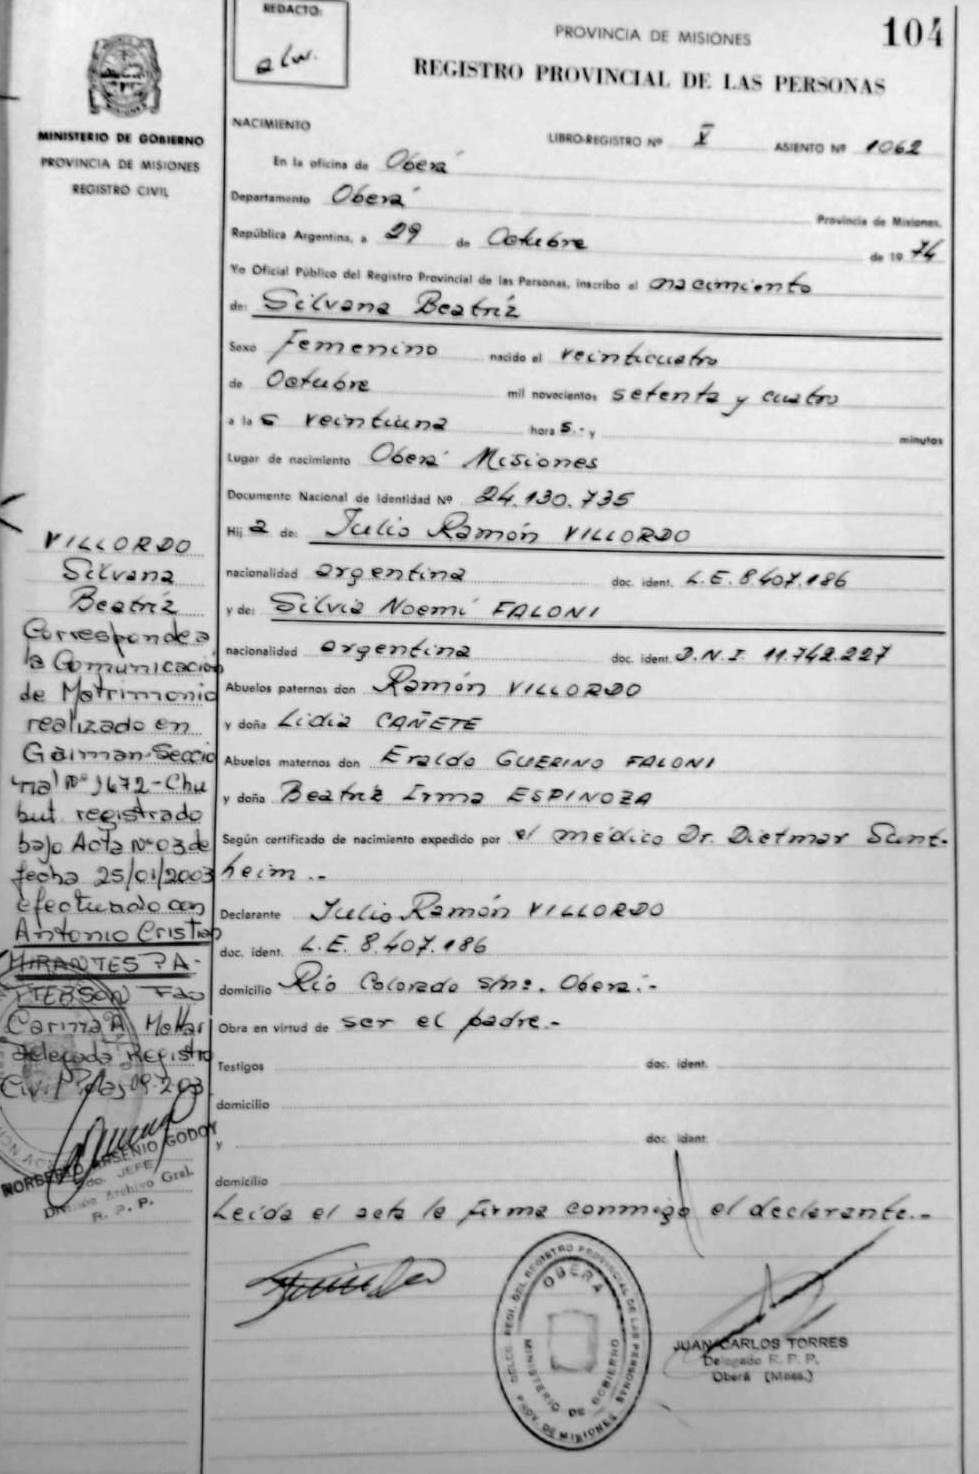 REDACTO:
alw.
PROVINCIA DE MISIONES
104
REGISTRO PROVINCIAL DE LAS PERSONAS
MINISTERIO DE GOBIERNO
PROVINCIA DE MISIONES
REGISTRO CIVIL
NACIMIENTO
LIBRO-REGISTRO Nº V ASIENTO Nº 1062
En la oficina de Oberá
Departamento Oberá Provincia de Misiones,
República Argentina, a 29 de Octubre de 19 74
Yo Oficial Público del Registro Provincial de las Personas, inscribo el nacimiento
de: Silvana Beatriz
Sexo Femenino nacido el veinticuatro
de Octubre mil novecientos setenta y cuatro
a las veintiuna hora s.- y minutos
Lugar de nacimiento Oberá Misiones
Documento Nacional de Identidad Nº 24.130.735
Hij a de: Julio Ramón VILLORDO
nacionalidad argentina doc. ident. L.E. 8.407.186
y de: Silvia Noemí FALONI
nacionalidad argentina doc. ident. D.N.I. 11.742.227
Abuelos paternos don Ramón VILLORDO
y doña Lidia CAÑETE
Abuelos maternos don Eraldo GUERINO FALONI
y doña Beatriz Irma ESPINOZA
Según certificado de nacimiento expedido por el médico Dr. Dietmar Sont-
heim.-
Declarante Julio Ramón VILLORDO
doc. ident. L.E. 8.407.186
domicilio Río Colorado s/nº. Oberá.-
Obra en virtud de ser el padre.-
Testigos doc. ident.
domicilio
y doc. ident.
domicilio
Leída el acta la firma conmigo el declarante.-
VILLORDO
Silvana
Beatriz
Corresponde a
la Comunicación
de Matrimonio
realizado en
Gaiman-Seccio
nal Nº 1672-Chu
but registrado
bajo Acta Nº 03 de
fecha 25/01/2003
efectuado con
Antonio Cristian
MIRANTES PA-
TTERSON Fdo
Carina A Mollar
delegada Registro
Civil
NORBERTO ARSENIO GODOY
JEFE
División Archivo Gral.
R. P. P.
DELEG. REGI. DEL REGISTRO PROVINCIAL DE LAS PERSONAS
OBERÁ
MINISTERIO DE GOBIERNO
PROV. DE MISIONES
JUAN CARLOS TORRES
Delegado R. P. P.
Oberá (Mnes.)